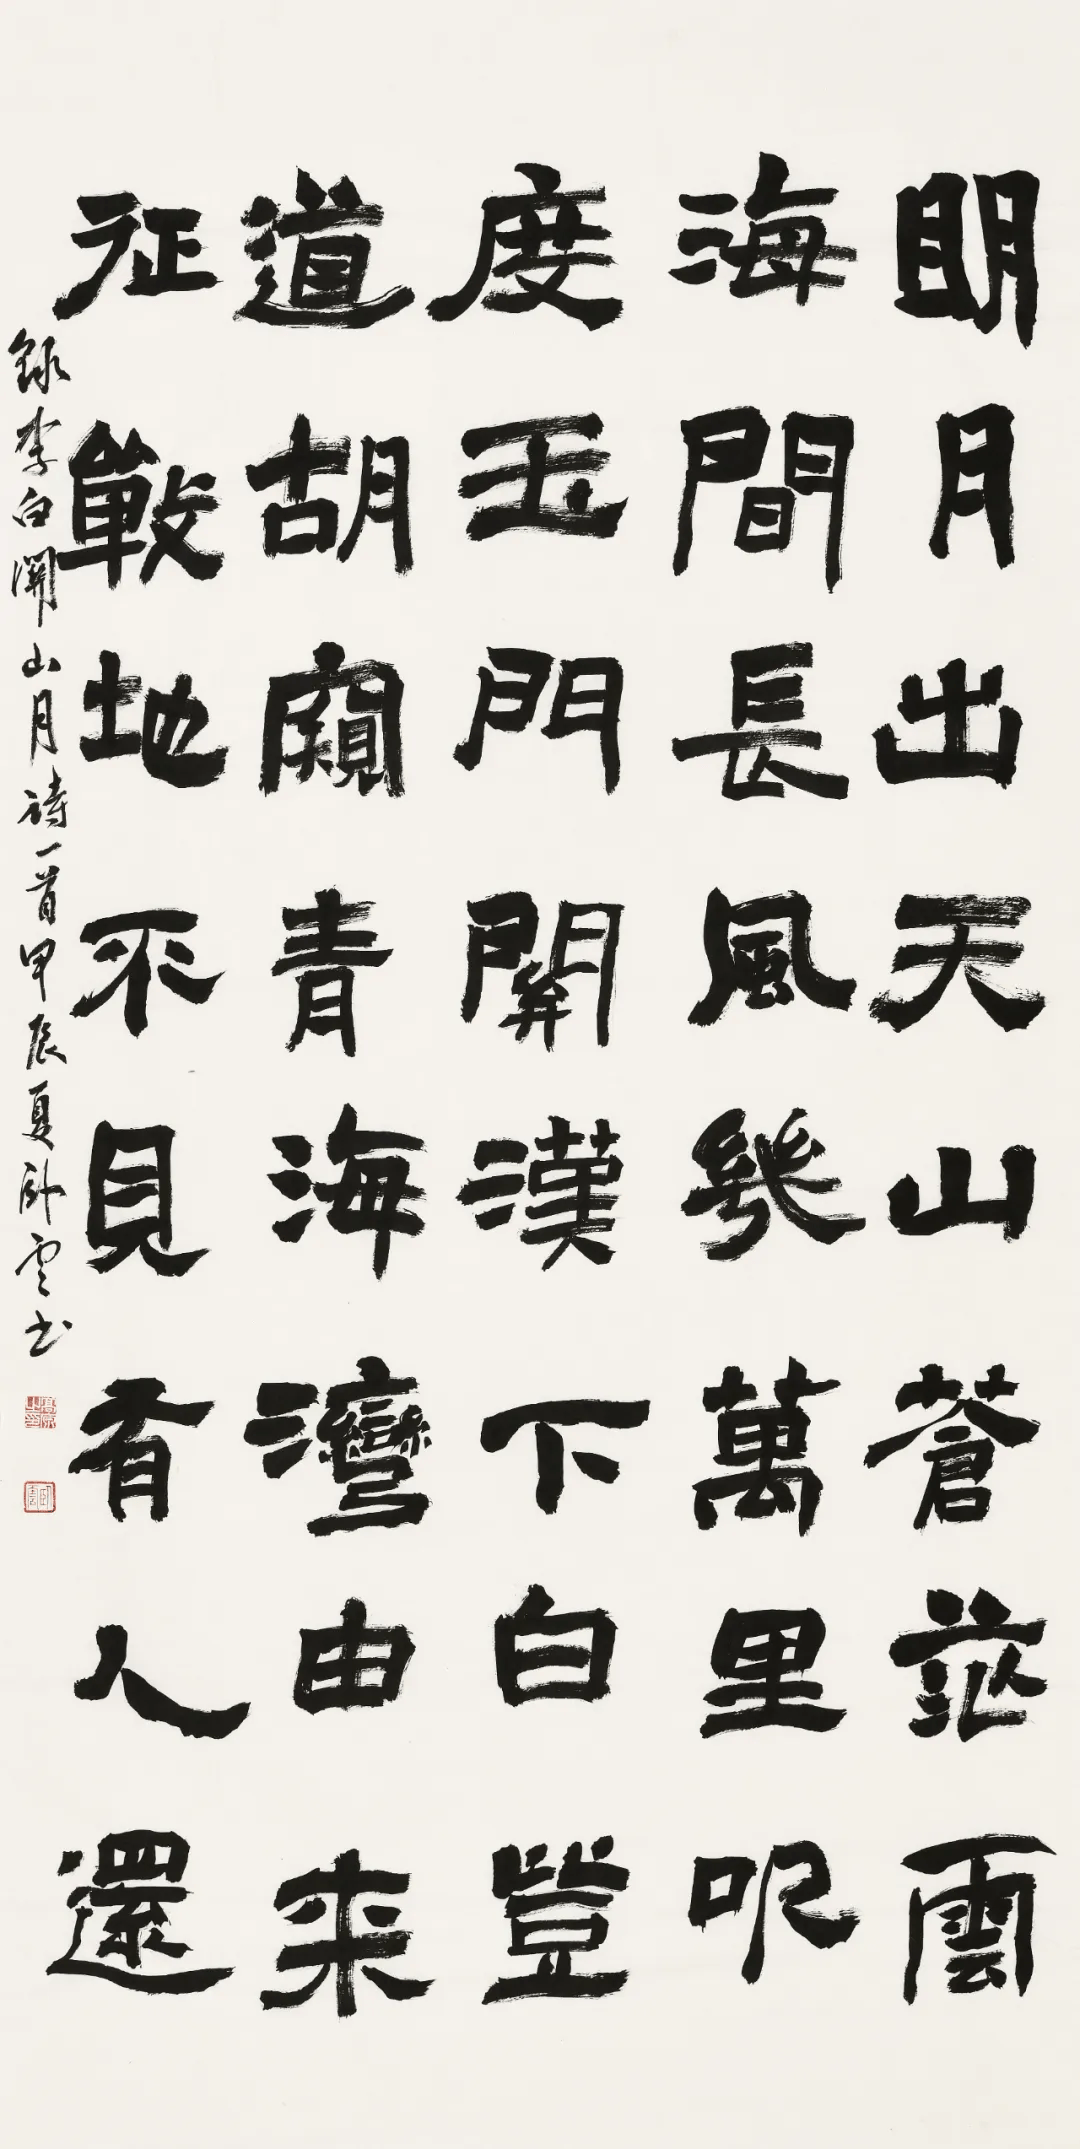 明月出天山蒼茫雲
海間長風幾萬里吹
度玉門關漢下白登
道胡窺青海灣由來
征戰地不見有人還
錄李白關山月詩一首甲辰夏臥雲书